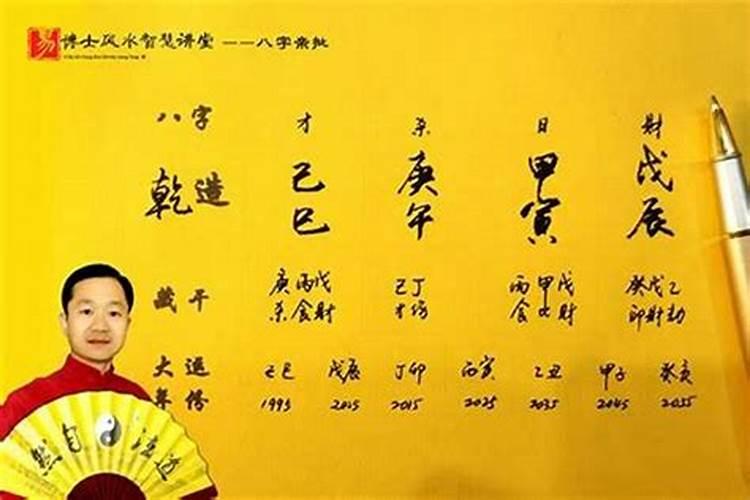 易 博士风水智慧讲堂 ——八字亲批
八字 才 杀 日 财
乾造 己 庚 甲 戊
巳 午 寅 辰
藏干 庚丙戊 己丁 丙甲戊 癸戊乙
杀食财 才伤 食比财 印财劫
大運 己巳 戊辰 丁卯 丙寅 乙丑 甲子 癸亥
年份 1995 2005 2015 2025 2035 2045 2055
道法自然